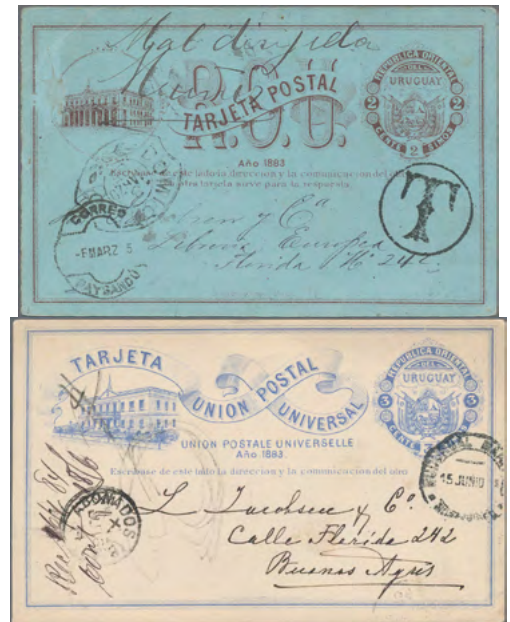 Mal dirijida
REPUBLICA ORIENTAL
DEL
URUGUAY
R.O.U.
TARJETA POSTAL
2 2
CENTE 2 SIMOS
Año 1883
Escríbase de este lado la dirección y la comunicación del otro
otra tarjeta sirve para la respuesta.
T
CORREO
MARZ 5
PAYSANDU
y Ca
Libreria Europea
Florida No 242
TARJETA
UNION POSTAL
UNIVERSAL
REPUBLICA ORIENTAL
DEL
URUGUAY
3 3
CENTE
UNION POSTALE UNIVERSELLE
Año 1883
Escríbase de este lado la dirección y la comunicación del otro
15 JUNIO
ABONADOS
L Jacobsen y Co
Calle Florida 242
Buenos Ayres